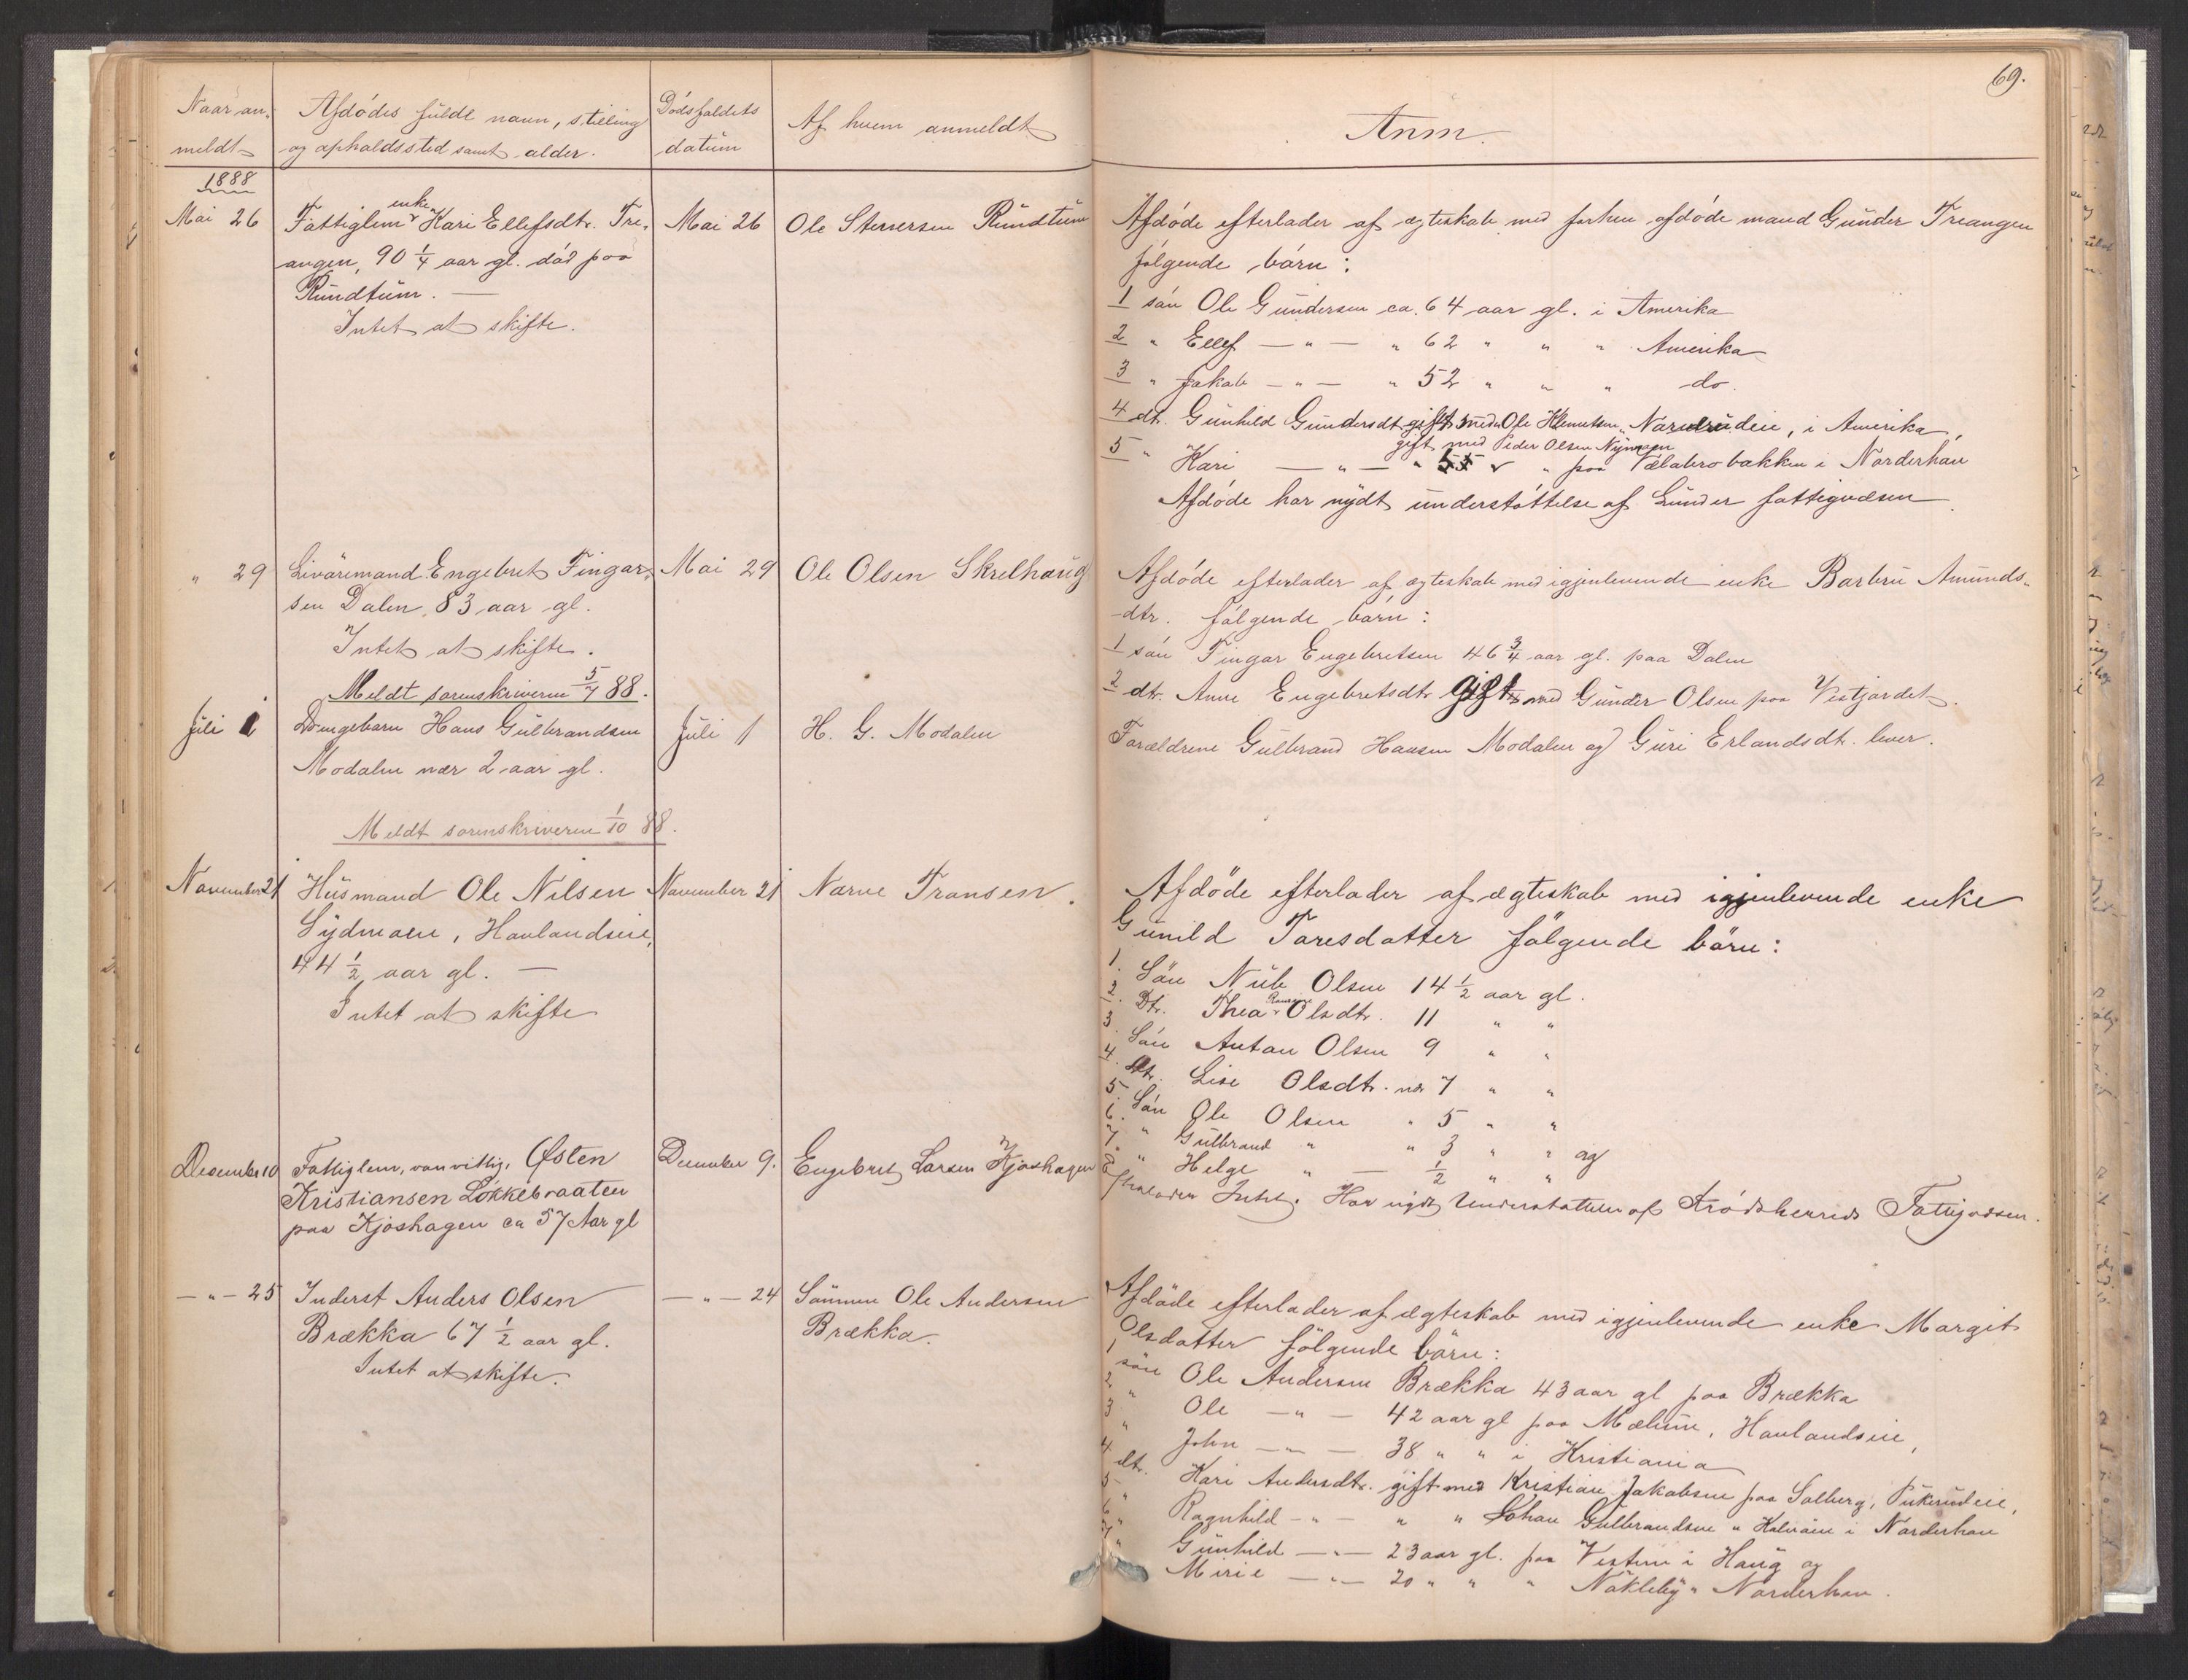 69.
Naar an-
meldt
Afdödes fulde navn, stilling
og opholdssted samt alder.
Dödsfaldets
datum
Af hvem anmeldt
Anm.
1888
Mai 26
enke
Fattiglem Kari Ellefsdtr. Tre-
angen, 90 1/4 aar gl. död paa
Rundtum. —
Intet at skifte.
Mai 26
Ole Steversen Rundtum
Afdöde efterlader af ægteskab med forhen afdöde mand Gunder Treangen
fölgende börn:
1 sön Ole Gundersen ca. 64 aar gl. i Amerika
2 " Ellef — " — " 62 " " " Amerika
3 " Jakob — " — " 52 " " " do.
4 dt. Gunhild Gundersdt gift med Ole Klemetsen, i Amerika,
gift med Peder Olsen Nymoen
5 " Kari — " — " 55 " " paa Vælabrobakken i Norderhov
Afdöde har nydt understöttelse af Lunder fattigvæsen.
" 29
Livöremand Engebret Fingar-
sen Dalen 83 aar gl.
Intet at skifte.
Meldt sorenskriveren 5/7 88.
Mai 29
Ole Olsen Skrelhaug
Afdöde efterlader af ægteskab med igjenlevende enke Barbru Amunds-
dtr. fölgende börn:
1 sön Fingar Engebretsen 46 3/4 aar gl. paa Dalen
2 dt. Anne Engebretsdtr gift med Gunder Olsen paa Vestjordet.
Juli 1
Drengebarn Hans Gulbrandsen
Modalen nær 2 aar gl.
Meldt sorenskriveren 1/10 88.
Juli 1
H. G. Modalen
Forældrene Gulbrand Hansen Modalen og Guri Erlandsdt. lever.
November 21
Husmand Ole Nilsen
Sydmoen, Hovlandseie,
44 1/2 aar gl. —
Intet at skifte
November 21
Narve Transen.
Afdöde efterlader af ægteskab med igjenlevende enke
Gunild Toresdatter fölgende börn:
1. Sön Nils Olsen 14 1/2 aar gl.
2. Dt. Thea Olsdtr. 11 " "
3. Sön Anton Olsen 9 " "
4. Dtr. Lise Olsdtr. nær 7 " "
5. Sön Ole Olsen " 5 " "
6. " Gulbrand " " 3 " " og
7. " Helge " — 1/2 " "
December 10
Fattiglem, vanvittig, Østen
Kristiansen Løkkebraaten
paa Kjøshagen ca 57 Aar gl
December 9.
Engebret Larsen Kjøshagen
Efterlader Intet. Har nydt Understøttelse af Krødsherreds Fattigvæsen.
— " — 25
Inderst Anders Olsen
Brækka 67 1/2 aar gl.
Intet at skifte.
— " — 24
Sönnen Ole Andersen
Brækka.
Afdöde efterlader af ægteskab med igjenlevende enke Margit
Olsdatter fölgende börn:
1 sön Ole Andersen Brækka 43 aar gl paa Brækka
2 " Ole — " — 42 aar gl paa Mælum, Hovlandseie,
3 " John — " — 38 " " i Kristiania
4 dt. Kari Andersdtr. gift med Kristian Jakobsen paa Solberg, Pukerudeie,
5 " Ragnhild — " — " " Johan Gulbrandsen " i Norderhov
6 " Gunhild — " — 23 aar gl. paa Vestern i Haug og
7 " Mirie — " — 20 " " " Nökleby " Norderhov.